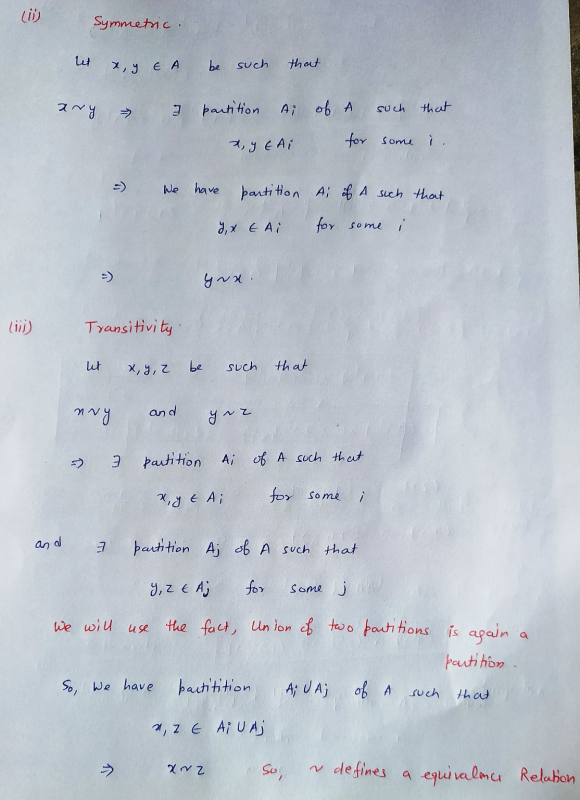 (ii) Symmetric.
Let x, y ∈ A be such that
x ~ y ⇒ ∃ partition Ai of A such that
x, y ∈ Ai for some i.
⇒ We have partition Ai of A such that
y, x ∈ Ai for some i
⇒ y ~ x.
(iii) Transitivity.
Let x, y, z be such that
x ~ y and y ~ z
⇒ ∃ partition Ai of A such that
x, y ∈ Ai for some i
and ∃ partition Aj of A such that
y, z ∈ Aj for some j
We will use the fact, Union of two partitions is again a
partition.
So, We have partitition Ai ∪ Aj of A such that
x, z ∈ Ai ∪ Aj
⇒ x ~ z So, ~ defines a equivalence Relation